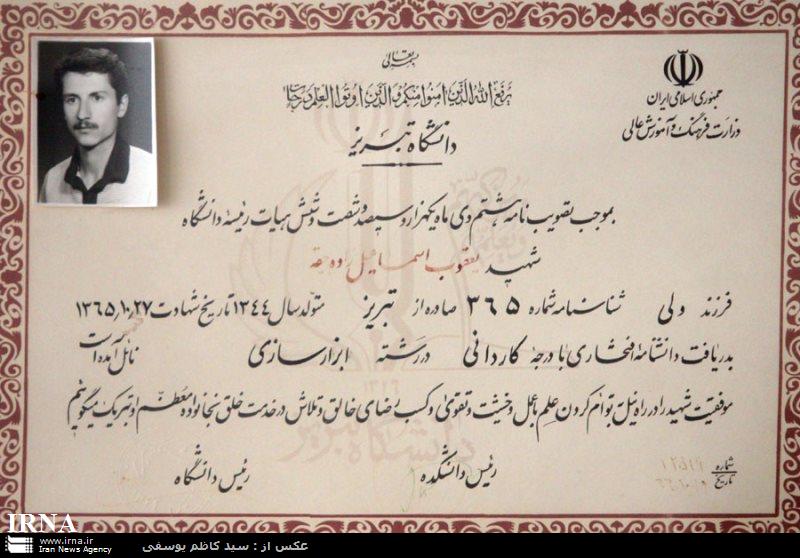 بسمه تعالی
یرفع الله الذین امنوا منکم والذین اوتوا العلم درجات
جمهوری اسلامی ایران
وزارت فرهنگ و آموزش عالی
دانشگاه تبریز
بموجب تصویب نامه هشتم دی ماه یکهزار و سیصد و شصت و شش هیات رئیسه دانشگاه
شهید یعقوب اسماعیل زاده
فرزند ولی شناسنامه شماره ۳۶۵ صادره از تبریز متولد سال ۱۳۴۴ تاریخ شهادت ۱۳۶۵/۱۰/۲۷
بدریافت دانشنامه افتخاری با درجه کاردانی در رشته ابزارسازی نائل آمده است
موفقیت شهید را در راه نیل بتوام کردن علم با عمل و خشیت و تقوی و کسب رضای خالق و تلاش در خدمت خلق بخانواده معظم او تبریک میگوئیم
رئیس دانشکده
رئیس دانشگاه
شماره
تاریخ
IRNA
www.irna.ir
Iran News Agency
عکس از : سید کاظم یوسفی